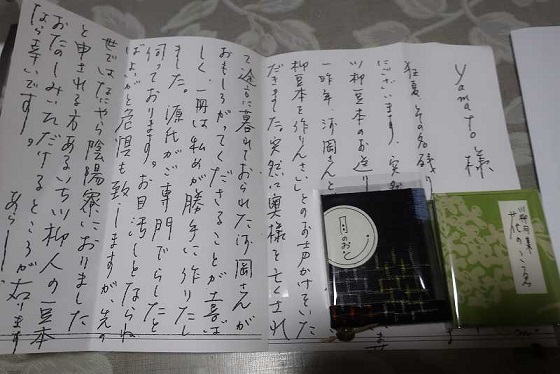 Yamato 様
狂妻、その名残り
にございます。突然
川柳豆本のお送り
一昨年 河岡さんと
柳豆本を作りんさいとのお声かけをいた
だきました。突然に奥様を亡くされ
て途方に暮れておられた河岡さんが
おもしろがってくださることが喜ば
しく一冊は私めが勝手に作りたし
ました。源氏がご専門でらしたと
伺っております。お目汚しとならね
ばよいがと危惧も致しますが、先の
世ではなにやら陰陽寮におりました
と申される方あるいは川柳人の豆本
おたのしみいただけるところが有ります
なら幸いです。
あらし
月のおと
川柳句集
花のこゑ